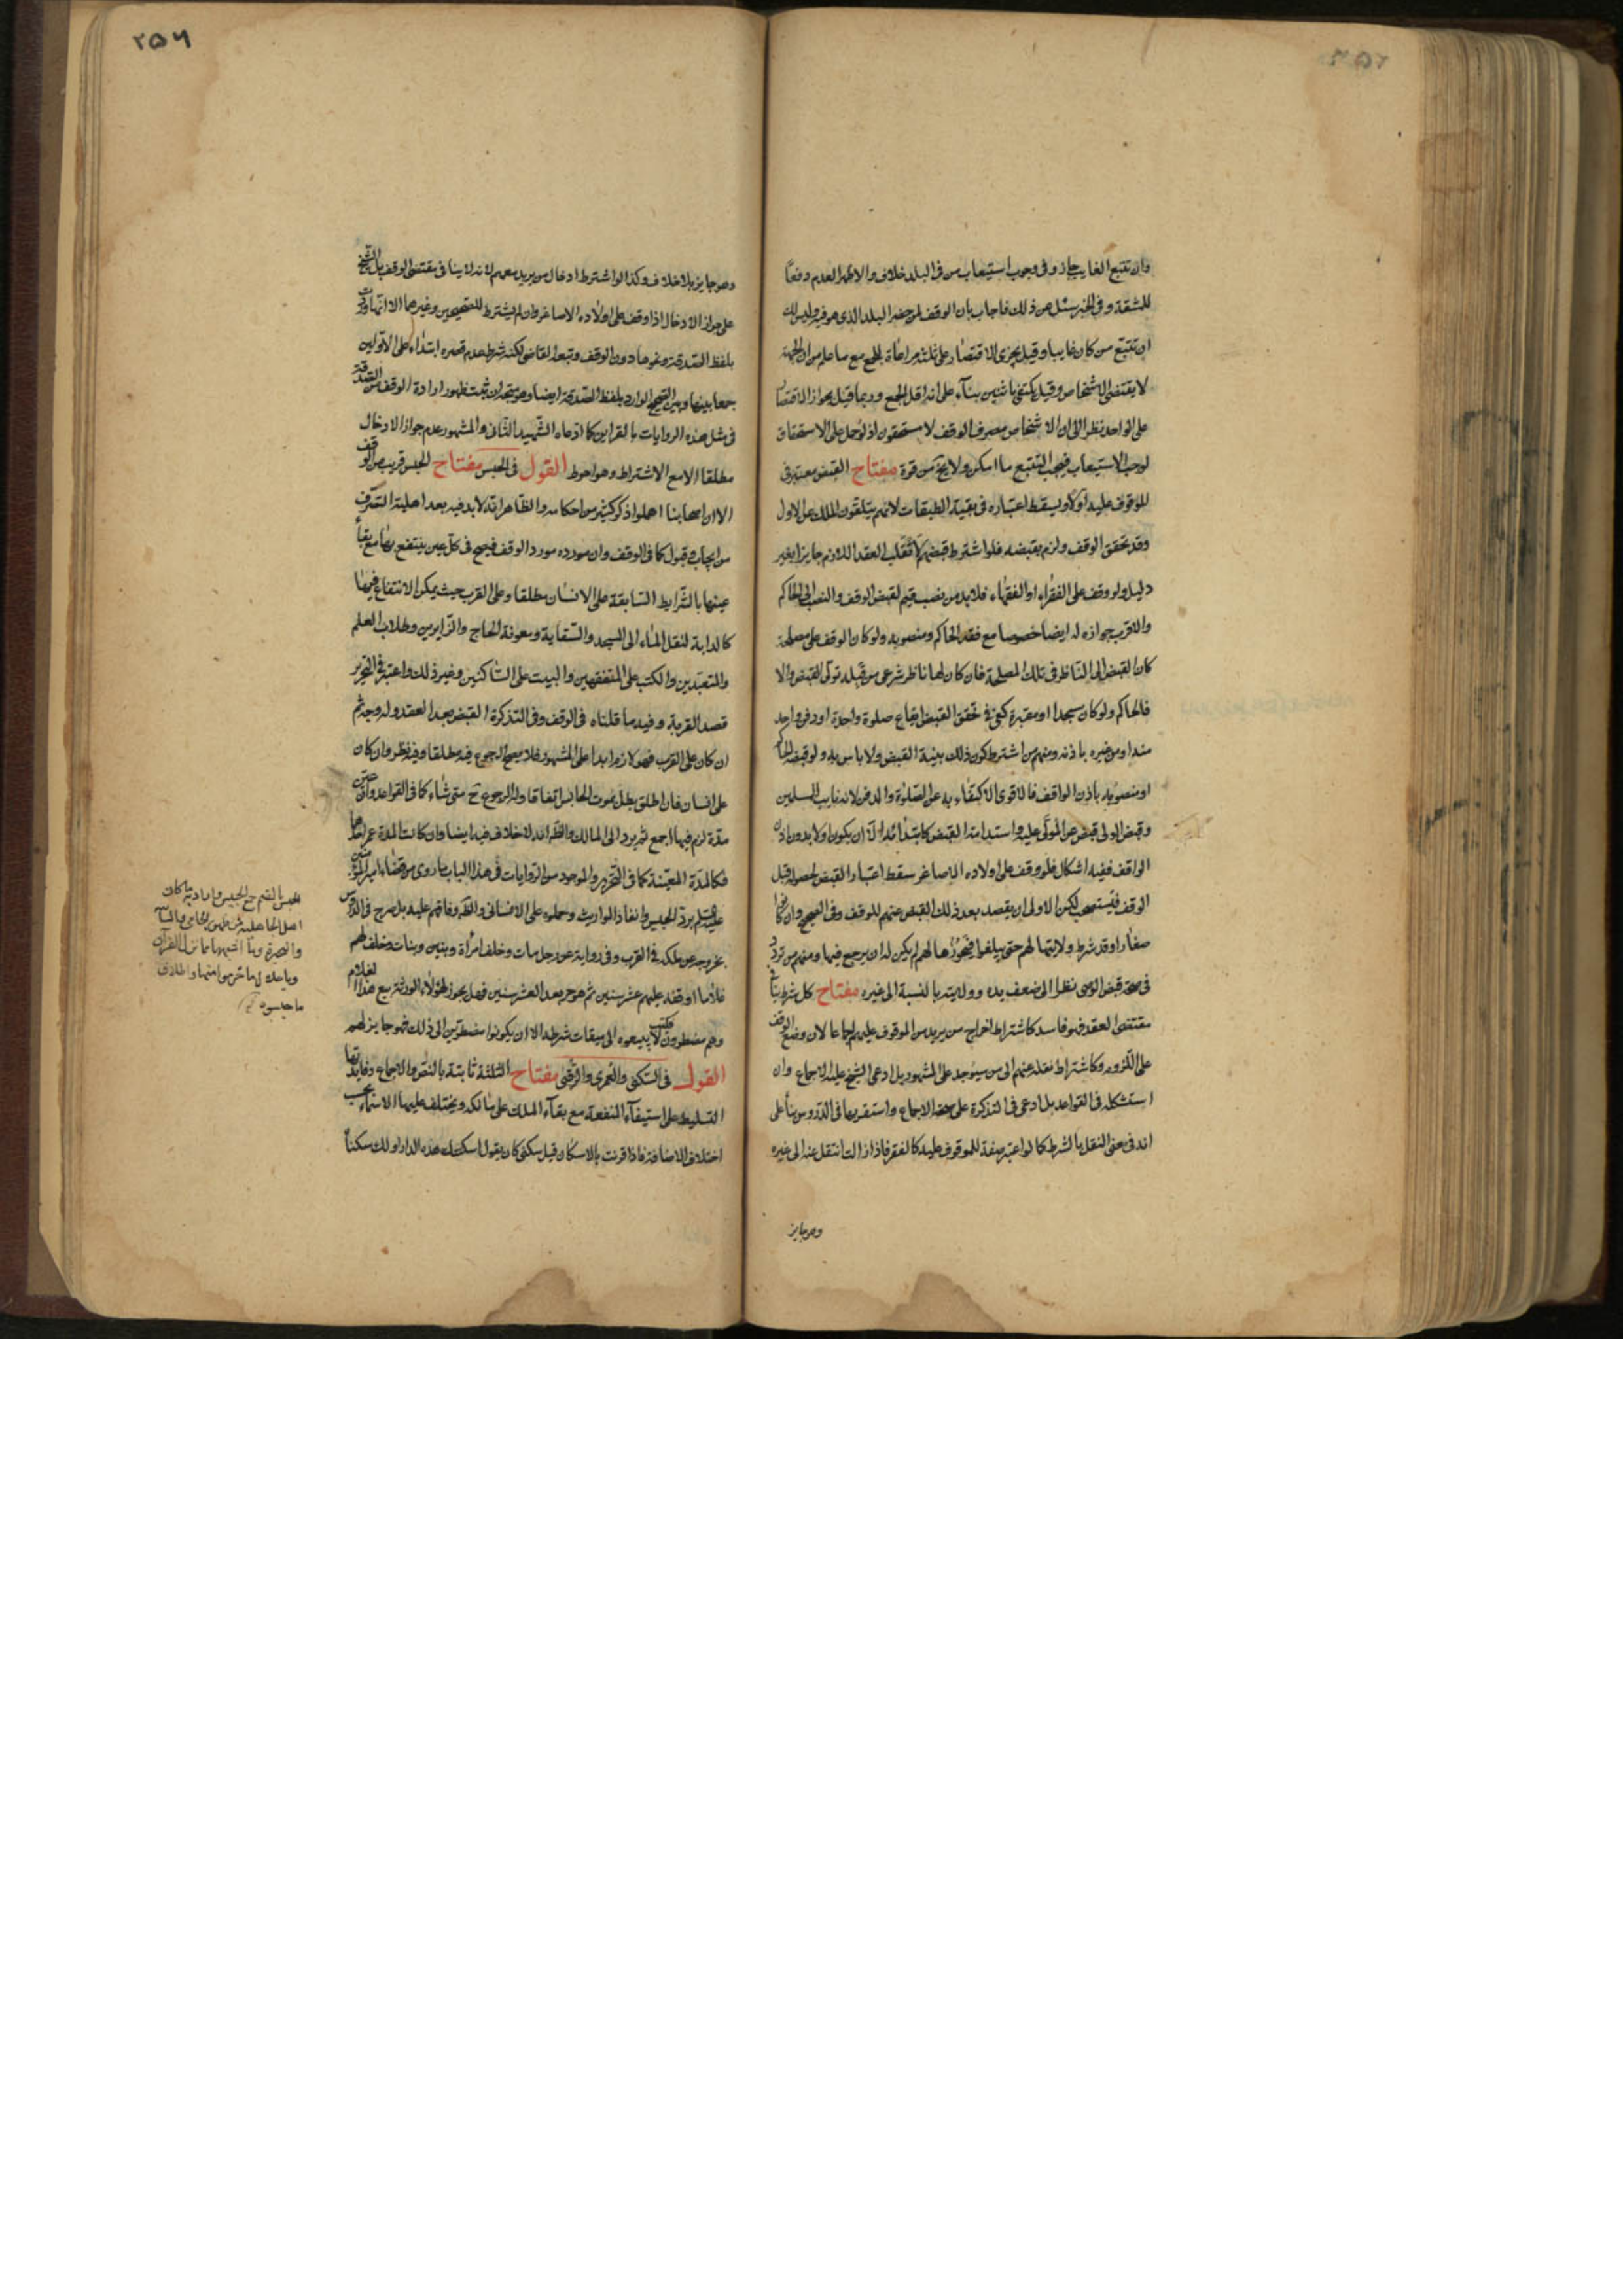 وان تتبع الغايب جاز وفى وجوب استيعاب من فى البلد خلاف والاظهر العدم دفعاً
للمشقة وفى الخبر سئل عن ذلك فاجاب بان الوقف لمن حضر البلد الذى هو فيه وليس لك
ان تتبع من كان غايبا وقيل يجزى الاقتصار على ثلثة مراعاة للجمع مع ما علم من ان الجهة
لا يقتضى الاشخاص وقيل يكتفى باثنين بناء على انه اقل الجمع وربما قيل بجواز الاقتصار
على الواحد نظرا الى ان الاشخاص مصرف الوقف لا مستحقون اذ لو حمل على الاستحقاق
لوجب الاستيعاب فيجب التتبع ما امكن ولا يخ من قوة مفتاح القبض معتبر فى
الموقوف عليه اولا ويسقط اعتباره فى بقية الطبقات لانهم يتلقون الملك عن الاول
وقد تحقق الوقف ولزم بقبضه فلو اشترط قبضهم لانقلب العقد اللازم جايزا بغير
دليل ولو وقف على الفقراء او الفقهاء فلا بد من نصب قيم لقبض الوقف والنصب الى الحاكم
والاقرب جوازه له ايضا خصوصا مع فقد الحاكم ومنصوبه ولو كان الوقف على مصلحة
كان القبض الى الناظر فى تلك المصلحة فان كان لها ناظر شرعى من قبله تولى القبض والا
فالحاكم ولو كان مسجدا او مقبرة كفى فى تحقق القبض ايقاع صلوة واحدة او دفن واحد
منه او من غيره باذنه ومنهم من اشترط كون ذلك بنية القبض ولا باس به ولو قبضه الحاكم
او منصوبه باذن الواقف فالاقوى الاكتفاء به عن الصلوة والدفن لانه نايب المسلمين
وقبض الولى قبض عن المولى عليه واستدامة القبض كابتدائه الا ان يكون اولا بدون اذن
الواقف ففيه اشكال فلو وقف على اولاده الاصاغر سقط اعتبار القبض لحصوله قبل
الوقف فيستصحب لكن الاولى ان يقصد بعد ذلك القبض عنهم للوقف وفى الصحيح وان كانوا
صغارا وقد شرط ولايتها لهم حتى يبلغوا فيحوزها لهم لم يكن له ان يرجع فيها ومنهم من تردد
فى صحة قبض الوصى نظرا الى ضعف يده وولايته بالنسبة الى غيره مفتاح كل شرط ينافى
مقتضى العقد فهو فاسد كاشتراط اخراج من يريد من الموقوف عليهم اجماعا لان وضع الوقف
على اللزوم وكاشتراط نقله عنهم الى من سيوجد على المشهور بل ادعى الشيخ عليه الاجماع وان
استشكله فى القواعد بل ادعى فى التذكرة على صحته الاجماع واستقربها فى الدروس بناً على
انه فى معنى النقل بالشرط كما لو اعتبر صفة للموقوف عليه كالفقر فاذا زالت انتقل عنه الى غيره
وهو جايز
٢٥٦
وهو جايز بلا خلاف وكذا لو اشترط ادخال من يريد معهم لانه لا ينافى مقتضى الوقف بل الشيخ
على جواز الادخال اذا وقف على اولاده الاصاغر وان لم يشترط للصحيحين وغيرهما الا انها وردت
بلفظ الصدقة ونحوها دون الوقف وتبعه القاضى لكنه شرط عدم قصره ابتداء على الاولين
جمعا بينها وبين الصحيح الوارد بلفظ الصدقة ايضا وهو متجه ان ثبت ظهور ارادة الوقف من الصدقة
فى مثل هذه الروايات بالقراين كما ادعاه الشهيد الثانى والمشهور عدم جواز الادخال
مطلقا الا مع الاشتراط وهو احوط القول فى الحبس مفتاح الحبس قريب من الوقف
الا ان اصحابنا اهملوا ذكر كثير من احكامه والظاهر انه لا بد فيه بعد اهلية التصرف
من ايجاب وقبول كما فى الوقف وان مورده مورد الوقف فيصح فى كل عين ينتفع بها مع بقاء
عينها بالشرايط السابقة على الانسان مطلقا وعلى القرب حيث يمكن الانتفاع فيها
كالدابة لنقل الماء الى المسجد والسقاية ومعونة الحاج والزايرين وطلاب العلم
والمتعبدين والكتب على المتفقهين والبيت على الساكنين وغير ذلك واعتبر فى التحرير
قصد القربة وفيه ما قلناه فى الوقف وفى التذكرة القبض بعد العقد وله وجه ثم
ان كان على القرب فهو لازم ابدا على المشهور فلا يصح الرجوع فيه مطلقا وفيه نظر وان كان
على انسان فان اطلق بطل بموت الحابس اتفاقا وله الرجوع ح متى شاء كما فى القواعد وان عين
مدة لزم فيها اجمع ثم يرد الى المالك والظ انه لا خلاف فيه ايضا وان كانت المدة عمر احدهما
فكالمدة المعينة كما فى التحرير والموجود من الروايات فى هذا الباب ما روى من قضاء امير المؤمنين
عليه السلم برد الحبيس وانفاذ المواريث وحملوه على الانسانى والظ وفاقهم عليه بل صرح فى الدروس
بخروجه عن ملكه فى القرب وفى رواية عن رجل مات وخلف امرأة وبنين وبنات وخلف لهم
غلاما اوقفه عليهم عشر سنين ثم هو حر بعد العشر سنين فهل يجوز لهؤلاء الورثة بيع هذا الغلام
وهم مضطرون فكتب لا يبيعوه الى ميقات شرطه الا ان يكونوا مضطرين الى ذلك فهو جايز لهم
القول فى السكنى والعمرى والرقبى مفتاح الثلثة ثابتة بالنص والاجماع وفايدتها
التسليط على استيفاء المنفعة مع بقاء الملك على مالكه ويختلف عليها الاسماء بحسب
اختلاف الاضافة فاذا قرنت بالاسكان قيل سكنى كان يقول اسكنتك هذه الدار او لك سكناً
الحبس بالضم جمع الحبيس
اهل الجاهلية